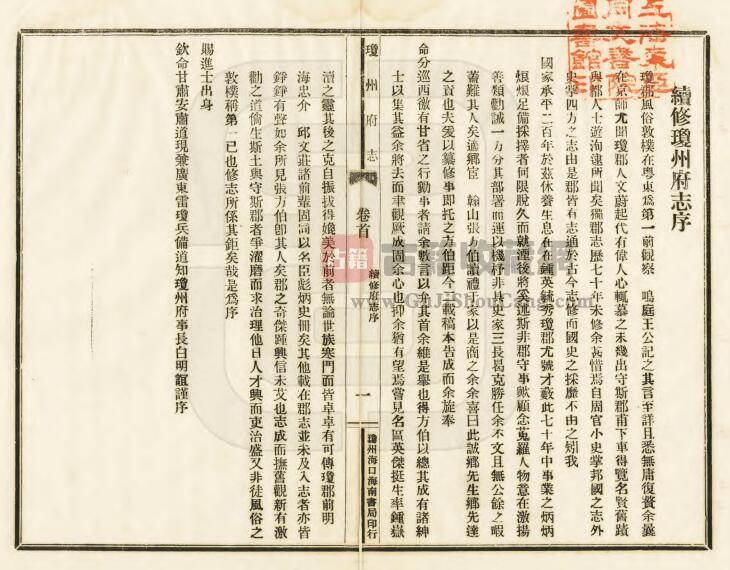 續修瓊州府志序
瓊郡風俗敦樸在粵東爲第一前觀察 鳴庭王公記之其言至詳且悉無庸復贅余曩
在京師尤聞瓊郡人文蔚起代有偉人心輒慕之未幾出守斯郡甫下車得覽名賢舊蹟
與都人士遊洵逮所聞矣獨郡志歷七十年未修余甚惜焉自周官小史掌邦國之志外
史掌四方之志由是郡皆有志通於古今志修而國史之採靡不由之矧我
國家承平二百年於茲休養生息在在鍾英毓秀瓊郡尤號才藪此七十年中事業之炳炳
烺烺足備採擇者何限脫久而就湮後將奚述斯非郡守事歟顧念蒐羅人物意在激揚
善類勸誡一方分其部署而運以機杼非具史家三長曷克勝任余不文且無公餘之暇
蓄難其人矣適鄉宦 翰山張方伯讀禮家居以是商之余余喜曰此誠鄉先生鄉先達
之責也夫爰以纂修事即托之方伯距今二載稿本告成而余旋奉
命分巡西徼有甘省之行勷事者請余數言以弁其首余維是舉也得方伯以總其成有諸紳
士以集其益余將去而聿觀厥成固余心也抑余猶有望焉嘗見名區英傑挺生率鍾嶽
瀆之靈其後之克自振拔得媲美於前者無論世族寒門而皆卓卓有可傳瓊郡前明
海忠介 邱文莊諸前輩固詞以名臣彪炳史冊矣其他載在郡志並未及入志者亦皆
錚錚有聲如余所見張方伯卽其人矣郡之奇傑踵興信未艾也志成而撫舊觀新有激
勸之道倘生斯土與守斯郡者爭濯磨而求治理他日人才興而吏治盛又非徒風俗之
敦樸稱第一已也修志所係其鉅矣哉是爲序
賜進士出身
欽命甘肅安肅道現兼廣東雷瓊兵備道知瓊州府事長白明誼謹序
瓊州府志
卷首
續修府志序
一
瓊州海口海南書局印行
古籍收藏网
www.GuJiShouCang.com